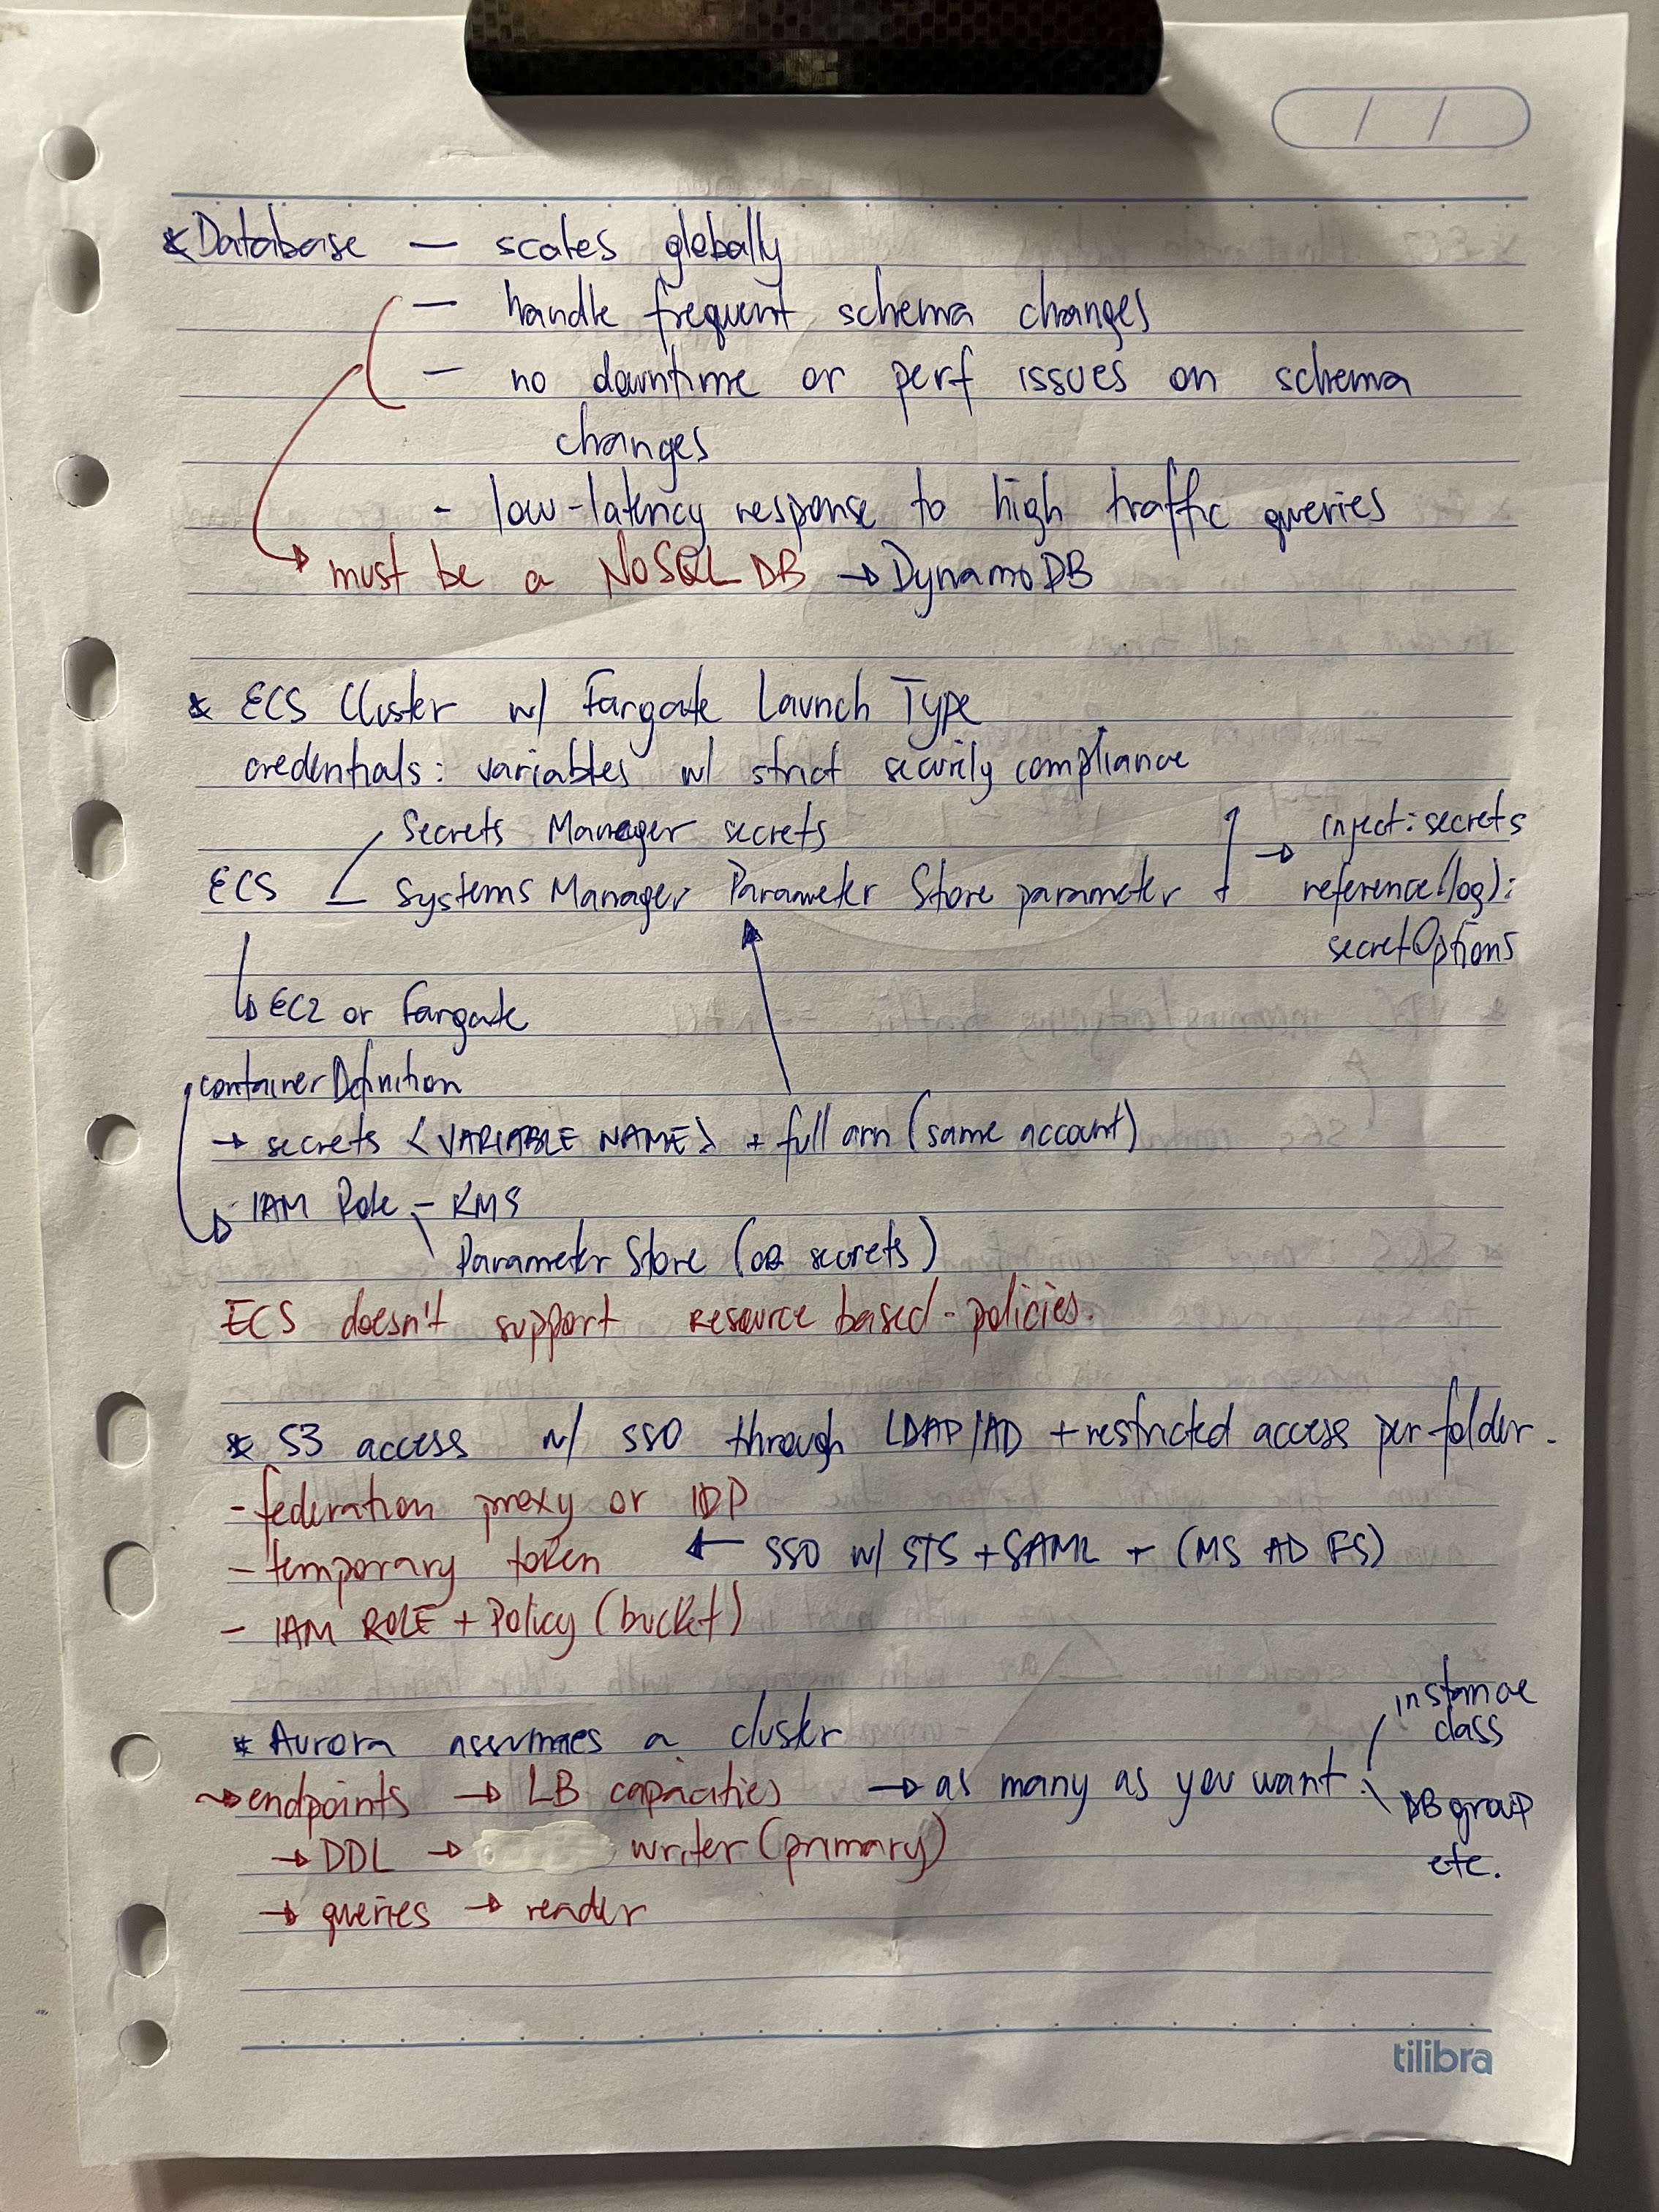 * Database — scales globally
— handle frequent schema changes
— no downtime or perf issues on schema
changes
- low-latency response to high traffic queries
→ must be a NoSQL DB → DynamoDB
* ECS Cluster w/ Fargate Launch Type
credentials: variables w/ strict security compliance
Secrets Manager secrets
ECS
Systems Manager Parameter Store parameter
→ inject: secrets
reference (log):
secretOptions
↳ EC2 or Fargate
containerDefinition
→ secrets <VARIABLE NAME> + full arn (same account)
IAM Role - KMS
Parameter Store (OR secrets)
ECS doesn't support resource based-policies.
* S3 access w/ SSO through LDAP/AD + restricted access per folder.
- federation proxy or IDP
- temporary token ← SSO w/ STS + SAML + (MS AD FS)
- IAM ROLE + Policy (bucket)
* Aurora assumes a cluster
→ endpoints → LB capacities → as many as you want:
instance
class
DB group
etc.
→ DDL → writer (primary)
→ queries → reader
tilibra